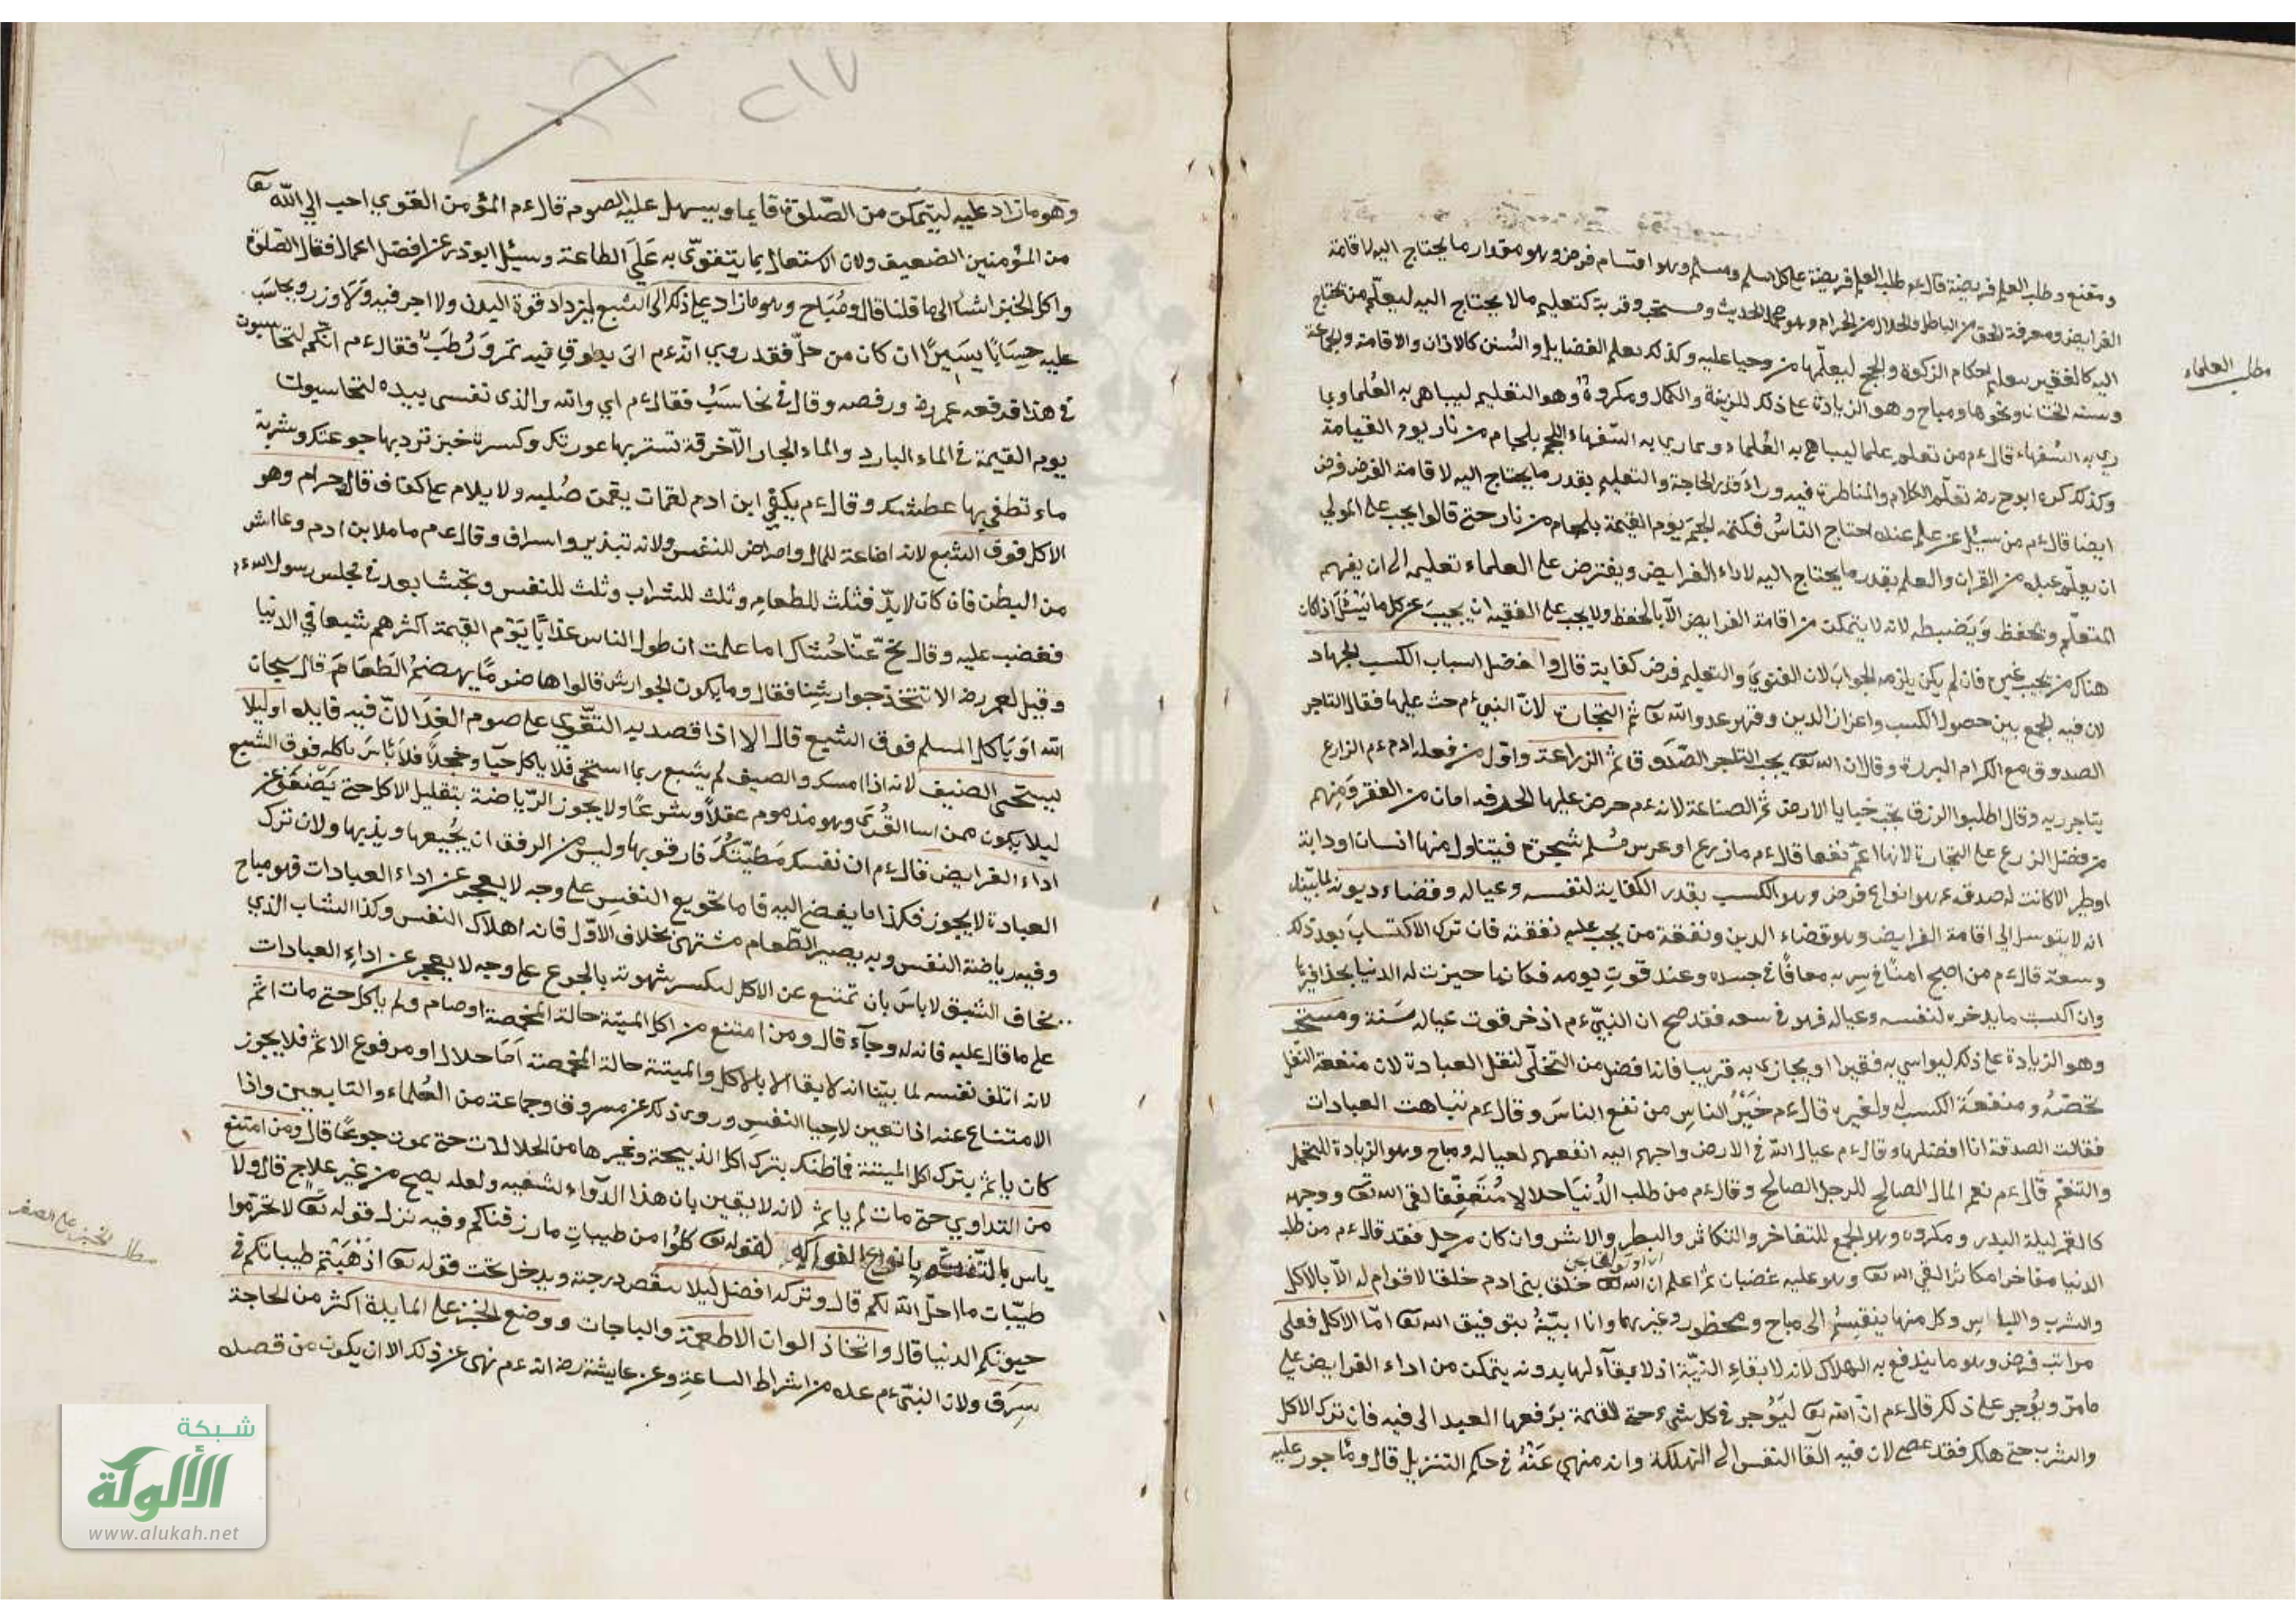 ومقنع وطلب العلم فريضة قال ءم طلب العلم فريضة على كل مسلم ومسلم وهو اقسام فرض وهو مقدار ما يحتاج اليه لاقامة
الفرايض ومعرفة الحق من الباطل والحلال من الحرام وهو محمل الحديث ومستحب وقربة كتعليم مالا يحتاج اليه ليعلّم من يحتاج
اليه كالفقير يتعلم احكام الزكوة والحج ليعلّمها من وجبا عليه وكذلك تعلم الفضايل والسُنن كالاذان والاقامة والجماعة
وسنة الختان ونحوها ومباح وهو الزيادة على ذلك للزينة والكمال ومكروهٌ وهو التعليم ليباهى به العُلما ويما
رى به السُفهاء قال ءم من تعلم علما ليباهى به العُلماء ويمارى به السّفهاء الجم بلجام من نار يوم القيامة
وكذلك كره ابوح رضه تعلّم الكلام والمناظرة فيه وراء قدر الحاجة والتعليم بقدر ما يحتاج اليه لاقامة الفرض فرض
ايضا قال ءم من سئل عن علم عنده احتاج الناسُ فكتمه الجِمَ يوم القيمة بلجام من نار حتى قالوا يجب على المولي
ان يعلّم عبده من القران والعلم بقدر ما يحتاج اليه لاداء الفرايض ويفترض على العلماء تعليمه الى ان يفهم
المتعلّم ويحفظ وَيَضبطه لانه لا يتمكن من اقامة الفرايض الّا بالحفظ ولا يجب على الفقيه ان يجيبَ عن كل ما يُسْئَل اذا كان
هناك من يجيب غيره فان لم يكن يلزمه الجوابَ لان الفتوىَ والتعليم فرض كفاية قال وافضل اسباب الكسب الجهاد
لان فيه الجمع بين حصول الكسب واعزاز الدين وقهر عدو الله تعا ثم التجارت لانّ النبي ءم حث عليها فقال التاجر
الصدوق مع الكرام البررة وقال ان الله تعا يحب التاجر الصّدَوق ثم الزراعة واوّل من فعله ادم ءم الزارع
يتاجر ربه وقال اطلبوا الرزق تحت خبايا الارض ثم الصناعة لانه ءم حرض عليها الحرفه امان من الفقر ومنهم
من فضل الزرع على التجارة لانها اعمّ نفعا قال ءم ما زرع او غرس مُسلم شجرة فيتناول منها انسان او دابة
او طير الا كانت له صدقة ءم هو انواع فرض وهو الكسب بقدر الكفاية لنفسه وعياله وقضاء ديونه لما بيّنا
انه لا يتوسل الى اقامة الفرايض وهو قضاء الدين ونفقة من يجب عليه نفقته فان ترك الاكتسابَ بعد ذلك
وسعه قال ءم من اصبح امنًا فى سربه معافًا فى جسده وعنده قوتِ يومه فكانما حيزت له الدنيا بحذافيرها
وان اكتسب ما يدخره لنفسه وعياله فهو فى سعه فقد صح ان النبيّ ءم اذخر قوت عياله سَنة ومستحب
وهو الزيادة على ذلك ليواسي به فقيرا او يجازى به قريبا فانه افضل من التخلّى لنفل العبادة لان منفعة النّفل
تخصّهُ ومنفعةَ الكسب له ولغيره قال ءم خَيْرُ الناسِ من نفع الناسَ وقال ءم تباهت العبادات
فقالت الصدقة انا افضلها وقال ءم عيال اللّه فى الارض واحبهم اليه انفعهم لعياله ومباح وهو الزيادة للتجمل
والتنعّم قال ءم نعم المال الصالح للرجل الصالح وقال ءم من طلب الدُنيَا حلالا مُتَعَفِّفًا لقى الله تعا ووجهه
كالقمر ليلة البدر ومكروه وهو الجمع للتفاخر والتكاثر والبطر والاشر وان كان من حل فقد قال ءم من طلب
الدنيا مفاخرا مكاثرا لقي الله تعا وهو عليه غضبان ثم اعلم ان الله تعا خلق بنى ادم خلقا لا قوام له الّا بالاكل
والشرب واللباس وكل منها ينقسِمُ الى مباح ومحظور وغيرهما وانا ابيّنهُ بتوفيق الله تعا امّا الاكل فعلى
مراتب فرض وهو ما يندفع به الهلاك لانه لابقاءِ البنيّة اذ لا بقاء لها بدونه يتمكن من اداء الفرايض على
مامرّ ويُؤجر على ذلك قال ءم انّ الله تعا ليُؤجر فى كل شىء حتى اللقمة يرَفعها العبد الى فيه فان ترك الاكل
والشرب حتى هلك فقد عصى لان فيه القا النفس الى التهلكة وانه منهي عَنْهُ فى حكم التنزيل قال وماجور عليه
مطلب العلماء
وهو ما زاد عليه ليتمكن من الصّلوة قايما ويسهل عليه الصوم قال ءم المؤمن القوي احب الي اللّه تعا
من المؤمنين الضعيف ولان الاشتغال بما يتقوّى به عَلَى الطاعة وسئِل ابو ذر عن افضل اعمال فقال الصّلوة
واكل الخبز اشٔا الى ما قلنا قال ومُبَاح وهو ما زاد على ذلك الى الشبع ليزداد قوة البدن ولا اجر فيه وَلَا وزر ويحاسَب
عليه حِسَابًا يسَيِرًا ان كان من حلّ فقد روي انّه ءم اتى بطوقٍ فيه تمر وَرُطَبٌ فقال ءم انكم لتحاسبون
فى هذا فدفعه عمر رضه ورفصه وقال فى نحاسَبُ فقال ءم اي والله والذى نفسى بيده لتحاسبون
يوم القيمة فى الماء البارد والماء الحار الّا خرقة تستر بها عورتك وكسرة خبز ترد بها جوعتك وشربة
ماء تطفى بها عطشك وقال ءم يكفي ابن ادم لقمات يقمن صُلبه ولا يلام على كفاف قال حرام وهو
الاكل فوق الشبع لانه اضاعة للمال وامراض للنفس ولانه تبذير واسراف وقال ءم ما ملا ابن ادم وعا اشر
من البطن فان كان لابدّ فثلث للطعامِ وثلث للشراب وثلث للنفس وتجشا بعد فى مجلس رسول الله ءم
فغضب عليه وقال نحّ عنّا جُشاك اما علمت ان طول الناس عذابًا يَوْم القيمة اكثرهم شبعا في الدنيا
وقيل لعمر رضه الا نتخذ جوارشنِا فقال وما يكون الجوارش قالوا هاضومًا يهضمُ الطَعَامَ قال سبحان
الله اوَيَاكل المسلم فوق الشبع قال الا اذا قصد به التقّوي على صوم الغدَا لانّ فيه فايده او ليلا
يستحى الضيف لانه اذا امسك والضيف لم يشبع ربما استحى فلا ياكل حيًا وخجلًا فلاَ بٔاسَ باكله فوق الشبع
ليلا يكون ممن اسا القُرىَ وهو مذموم عقلًا وشرعًا ولا يجوز الرّياضة بتقليل الاكل حتى يَضعَفَ عن
اداء الفرايض فقال ءم ان نفسك مَطيّتُكَ فارفق بها وليس من الرفق ان يُجيعها ويذيبها ولان ترك
العبادة لا يجوز فكذا ما يفضى اليه قاما تجويع النفسِ على وجه لا يعجز عن اداء العبادات فهو مباح
وفيه رياضة النفس وبه يصير الطّعام مشتهى بخلاف الاوّل فانه اهلاك النفس وكذا الشاب الذي
يخاف الشبق لاباسَ بان تمتنع عن الاكل ليكسر شهوته بالجوع على وجه لا يعجز عن اداءِ العبادات
على ما قال عليه فانه له وجآء قال ومن امتنع من اكل الميتة حالة المخمصة او صام ولم ياكل حتى مات اثم
لانه اتلف نفسه لما بيّنا انه لا بقا الا بالاكل والميتة حالة المخمصة اَمَا حلال او مرفوع الاثم فلا يجوز
الامتناع عنه اذا تعين لاحيا النفسِ وروى ذلك عن مسروق وجماعة من العُلماء والتابعين واذا
كان ياثم بترك اكل الميتة فما ظنك بترك اكل الذبيحة وغيرها من الحلالات حتى يموت جوعًا قال ومن امتنع
من التداوي حتى مات لم ياثم لانه لا يقين بان هذا الدّواء لشفيه ولعله يصح من غير علاج قال ولا
باس بالتفكه بانواع الفواكه لقوله تعا كلُوا من طيباتِ ما رزقناكم وفيه نزل قوله تعا لا تحرّموا
طيّبات ما احلّ اللّه لكم قال وتركه افضل لَيلا ينقُص درجة ويدخل تحت قوله تعا اذْهَبْتم طيباتكم فى
حيوتكم الدنيا قال واتخاذ الوان الاطعمة والباجات ووضع الخبز على المايدة اكثر من الحاجة
سِرَق ولان النبىّ ءم عده من اشراط الساعةِ وعن عايشة رضه انه ءم نهى عن ذلك الا ان يكون من قصده
شبكة
الألوكة
www.alukah.net